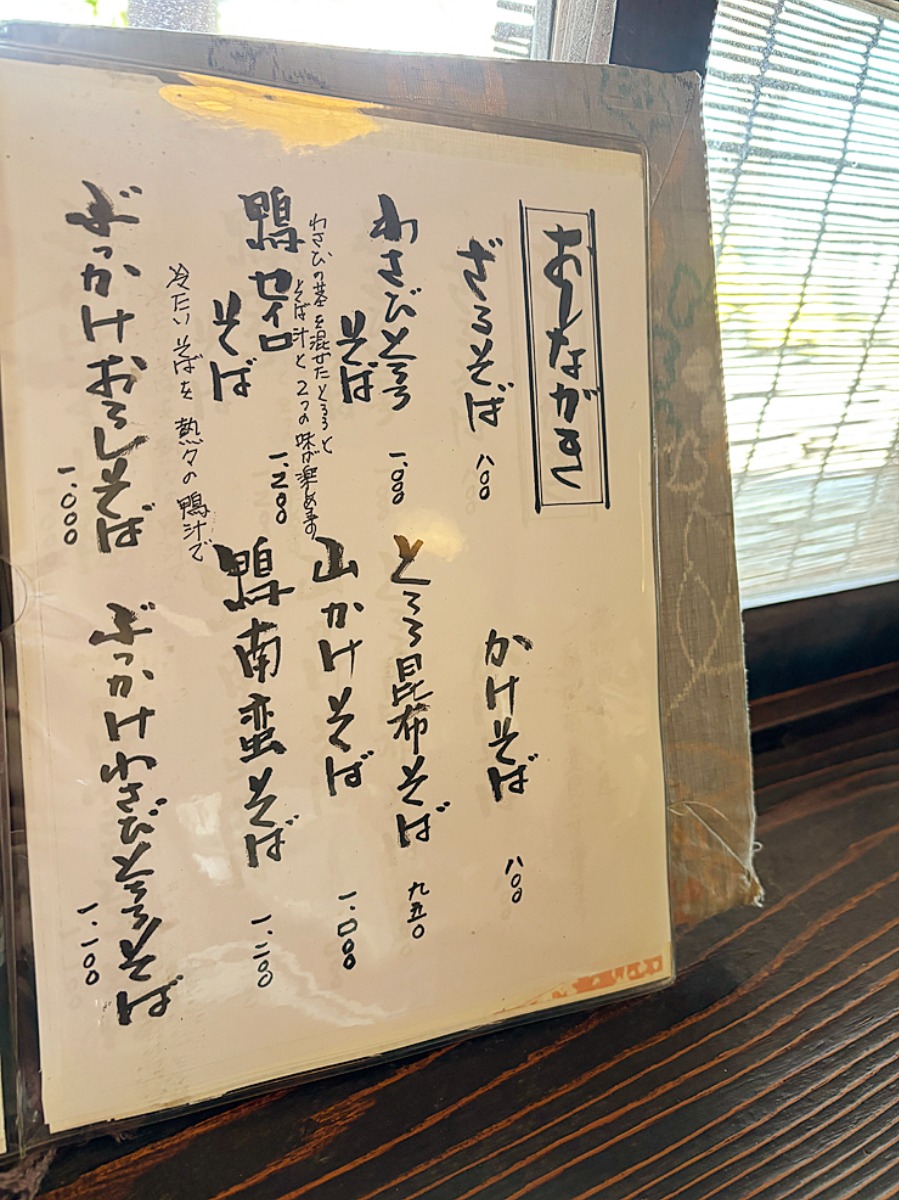 おしながき
ざるそば 八〇〇
かけそば 八〇〇
わさびとろろ
そば 一.〇〇〇
わさびの茎を混ぜたとろろと
そば汁と2つの味が楽めます
とろろ昆布そば 九五〇
山かけそば 一.〇〇〇
鴨セイロ
そば 一.二〇〇
冷たいそばを熱々の鴨汁で
鴨南蛮そば 一.二〇〇
ぶっかけおろしそば 一.〇〇〇
ぶっかけわさびとろろそば 一.一〇〇